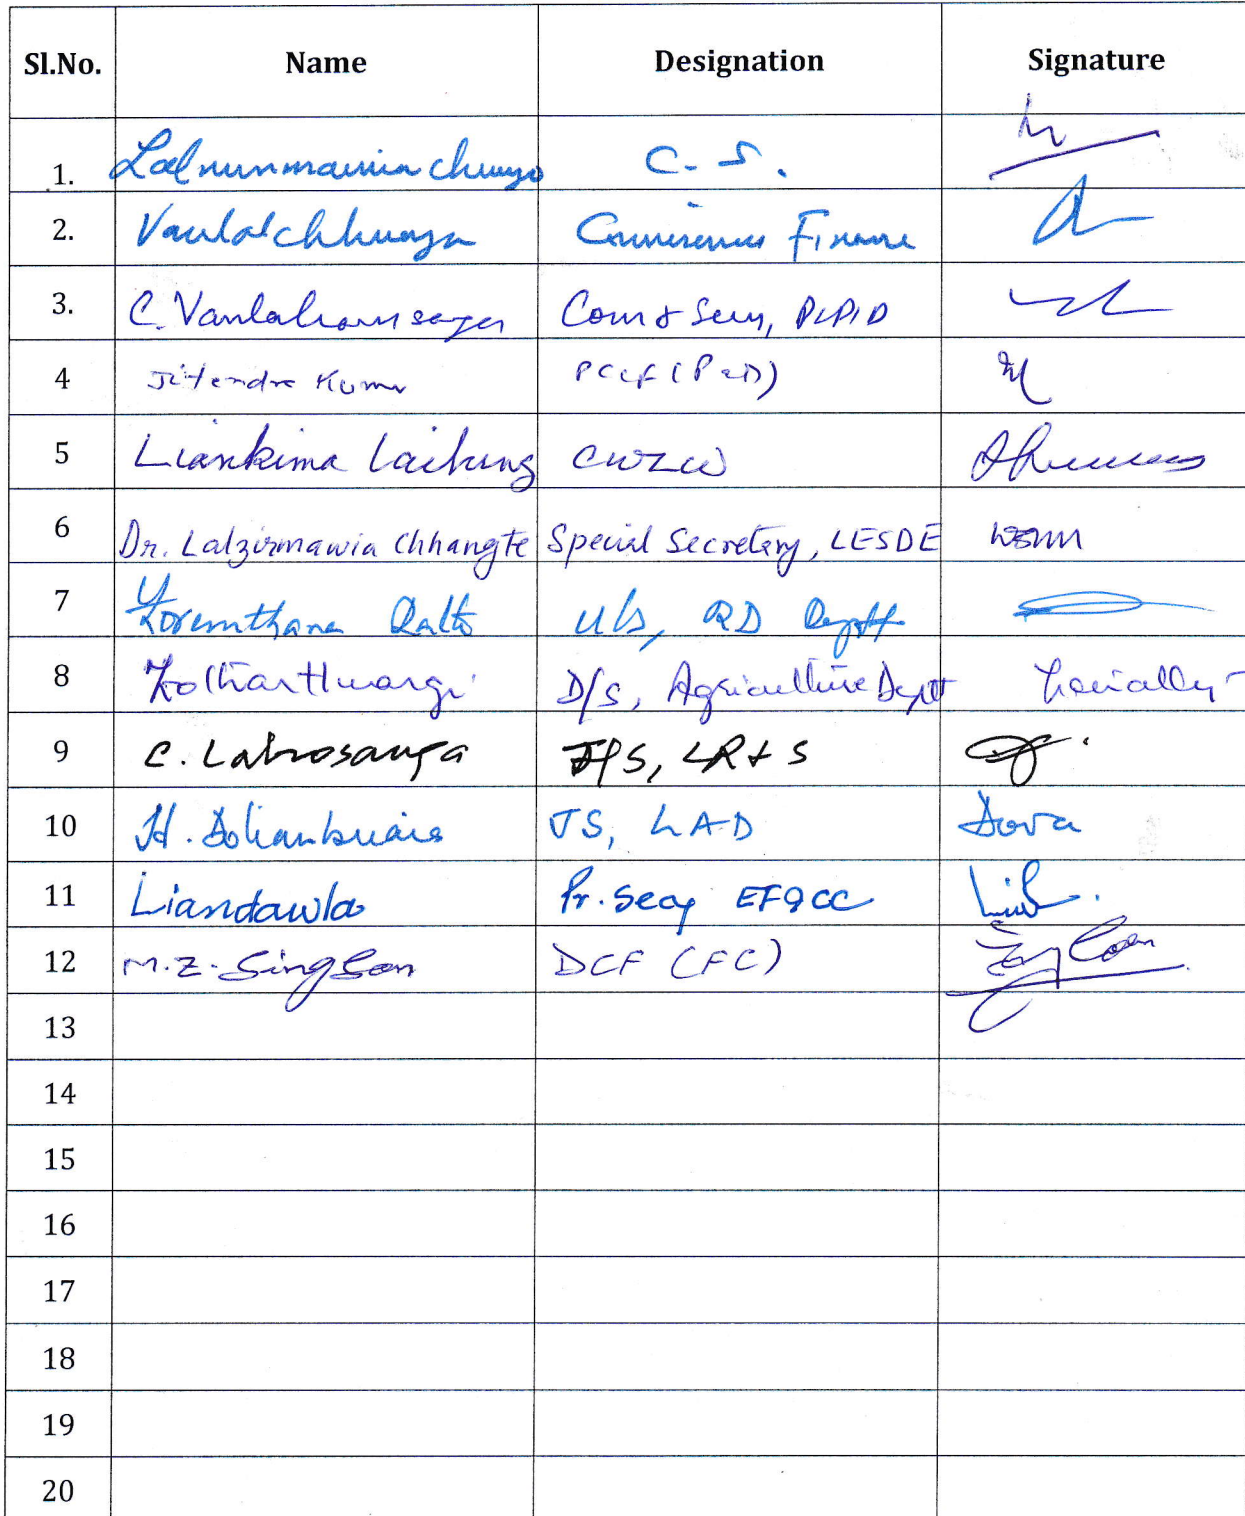 Sl.No. Name Designation Signature
1. Lalnunmawia Chuaugo C. S.
2. Vanlalchhuanga Commissioner Finance
3. C. Vanlalramsanga Com & Secy,
4 Jitendra Kumar PCCF
5 Liankima Lailung CWLW
6 Dr. Lalzirmawia Chhangte Special Secretary, LESDE
7 Zoremthana Ralte U/S, RD Deptt
8 Zolthantluangi D/S, Agriculture Deptt
9 C. Lalrosanga LR & S
10 JS, LAD Dova
11 Liandawla Pr. Secy EF&CC
12 M.Z. Singson DCF (FC)
13
14
15
16
17
18
19
20